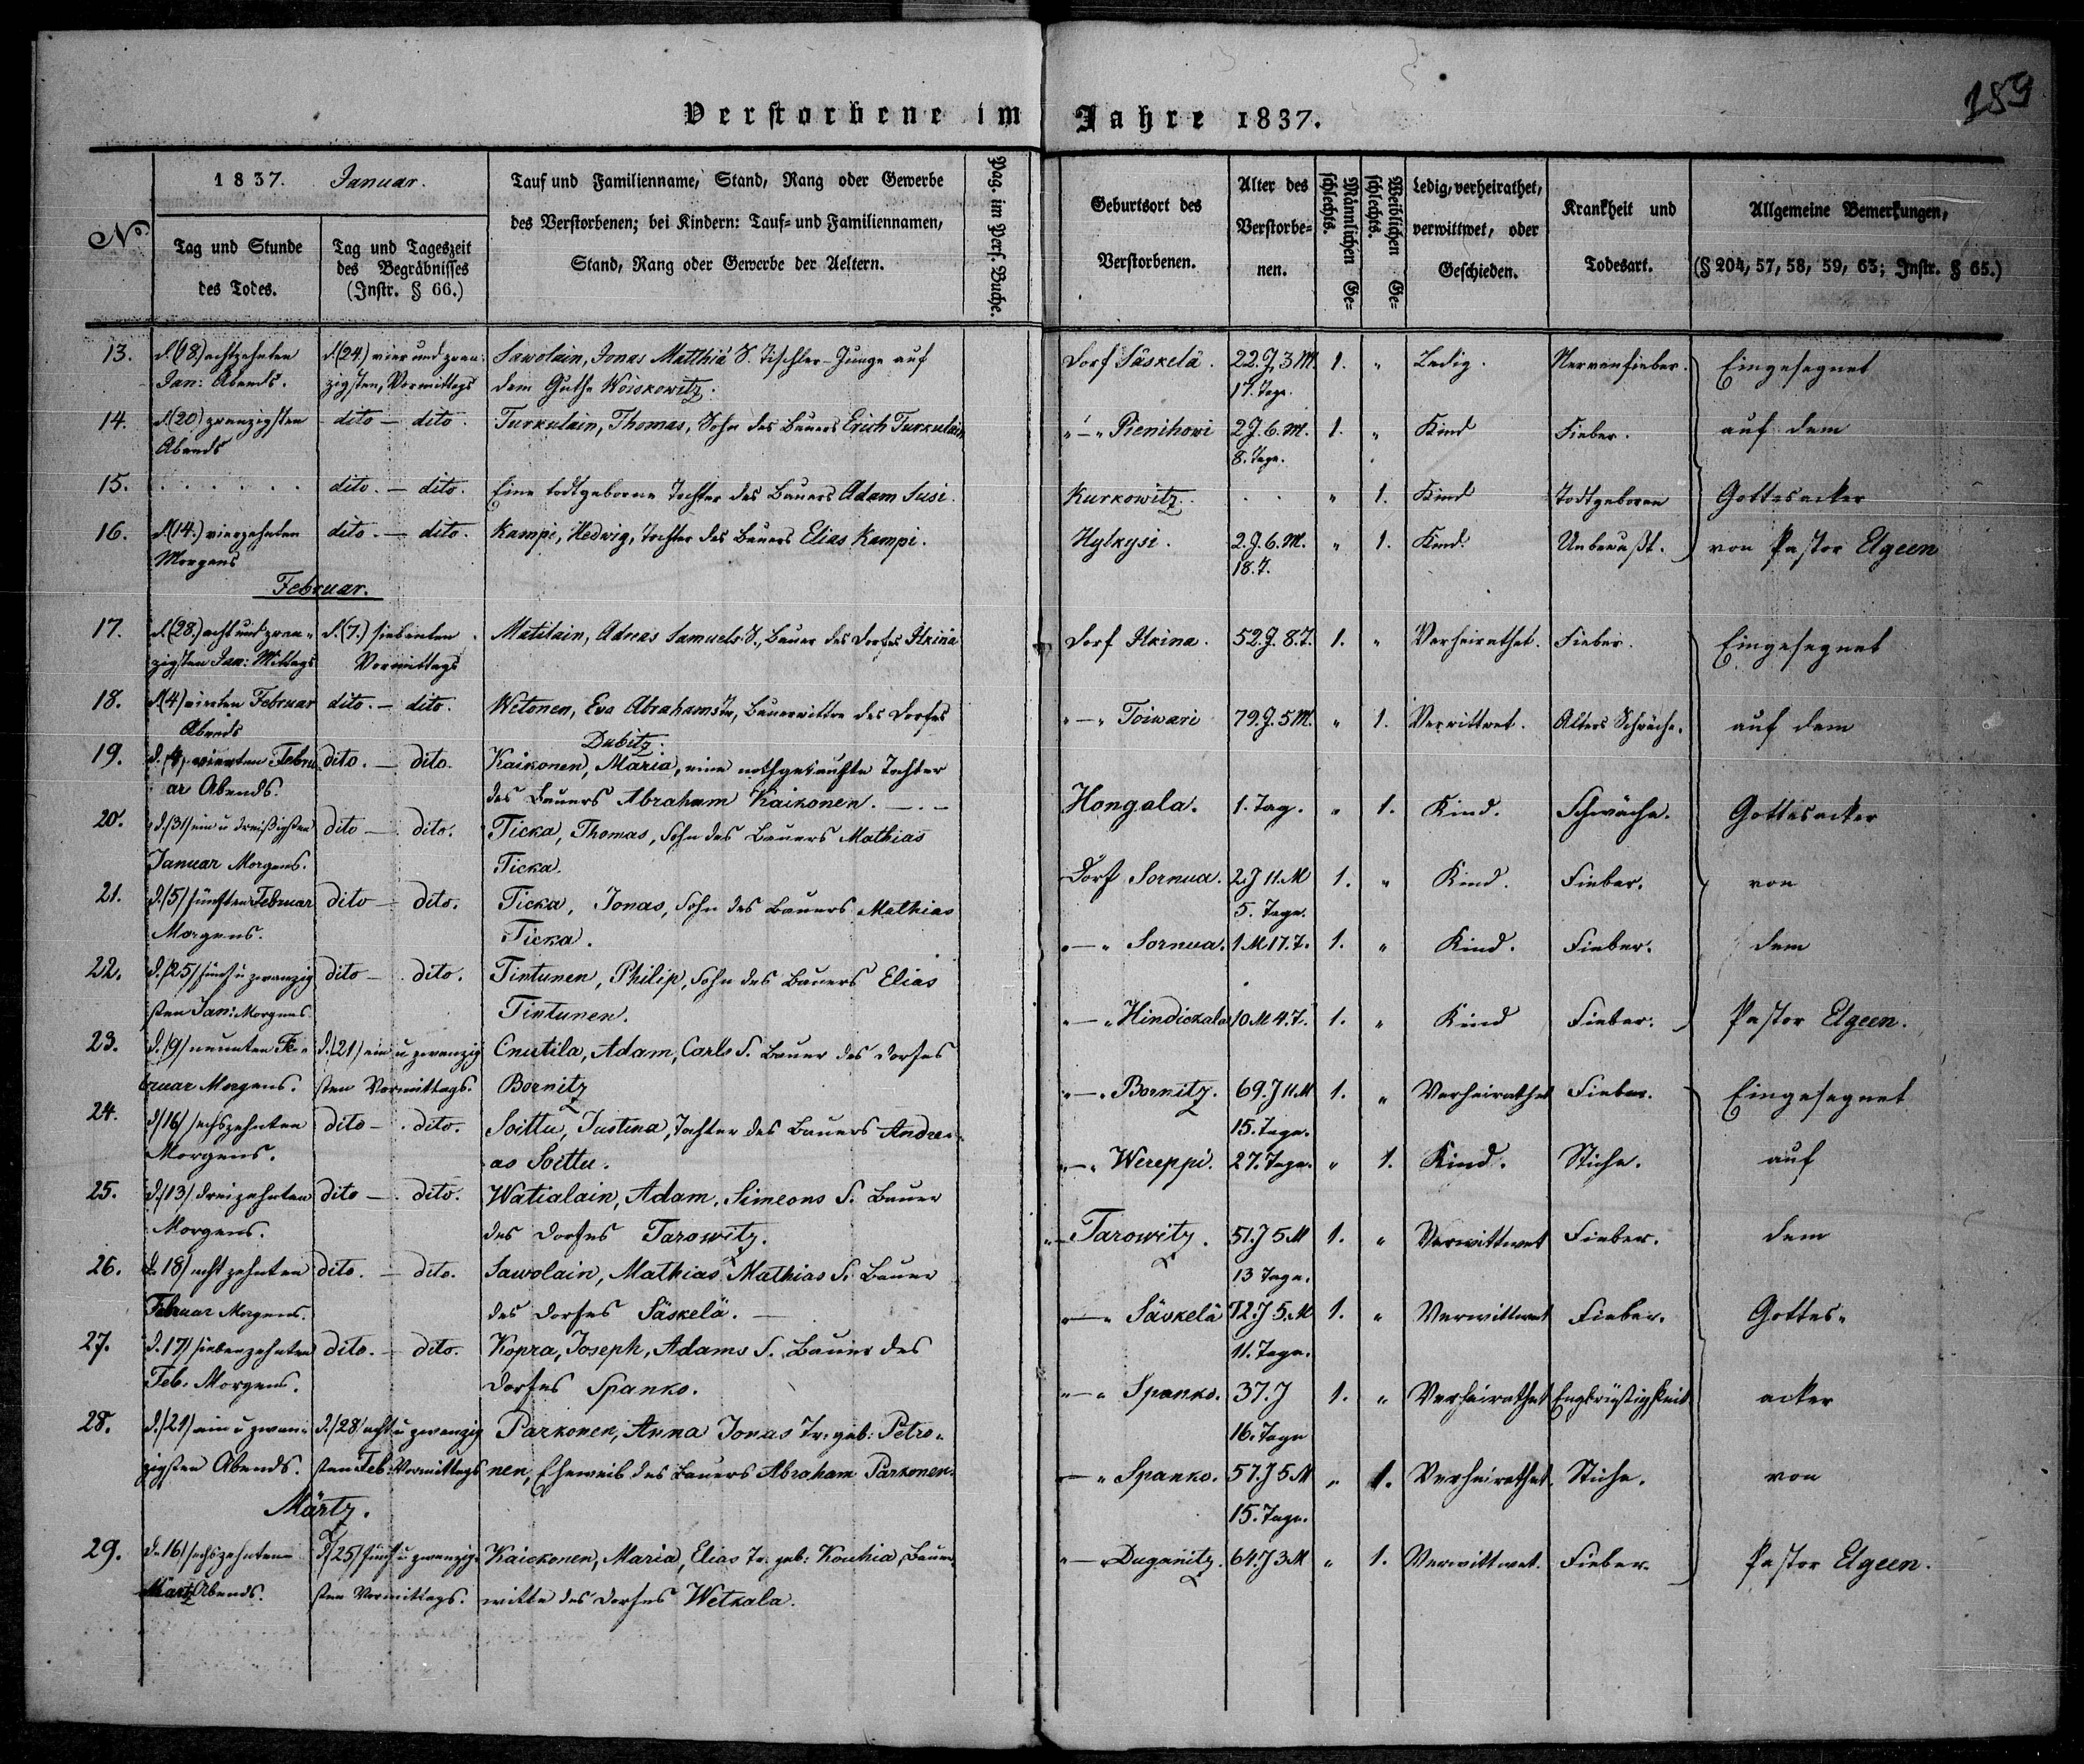 Verstorbene im Jahre 1837.
189
No
1837. Januar.
Tag und Stunde des Todes.
Tag und Tageszeit des Begräbnisses (Instr. § 66.)
Tauf und Familienname, Stand, Rang oder Gewerbe
des Verstorbenen; bei Kindern: Tauf- und Familiennamen,
Stand, Rang oder Gewerbe der Aeltern.
Pag. im Pers. Buche.
Geburtsort des Verstorbenen.
Alter des Verstorbe-nen.
Männlichen Ge-schlechts.
Weiblichen Ge-schlechts.
Ledig, verheirathet, verwittwet, oder Geschieden.
Krankheit und Todesart.
Allgemeine Bemerkungen,
(§ 204, 57, 58, 59, 63; Instr. § 65.)
13. d. (18.) achtzehnten d. (24.) vier und zwan- Sawolain, Jonas Matthiä S. Tischler-Junge auf Dorf Säskelä. 22. J. 3 M. 1. " Ledig. Nervenfieber. Eingesegnet
Jan: Abends. zigsten, Vormittags dem Guthe Woiskowitz. 17. Tage.
14. d. (20) zwanzigsten dito — dito. Turkulain, Thomas, Sohn des Bauers Erich Turkulain "—" Pienihowi 2 J. 6. M. 1. " Kind Fieber. auf dem
Abends 8. Tage.
15. . . . . . . dito. — dito. Eine todtgeborne Tochter des Bauers Adam Susi. Kurkowitz. . . " 1. Kind Todtgeboren Gottesacker
16. d. (14.) vierzehnten dito. — dito. Kampi, Hedwig, Tochter des Bauers Elias Kampi. Hylkysi. 2. J. 6. M. " 1. Kind. Unbewußt. von Pastor Elgeen
Morgens 18. T.
Februar.
17. d. (28.) acht und zwan- d. (7.) siebenten Matilain, Adreas Samuels S., Bauer des Dorfes Ilkina Dorf Ilkina. 52. J. 8. T. 1. " Verheirathet. Fieber. Eingesegnet
zigsten Jan: Mittags Vormittags
18. d. (4) vierten Februar dito. — dito. Wetonen, Eva Abrahams Tr, Bauerwittwe des Dorfes "—" Toiwari 79. J. 5 M. " 1. Verwittwet. Alters Schwäche. auf dem
Abends Dubitz.
19. d. (4) vierten Febru dito. — dito. Kaikonen, Maria, eine nothgetaufte Tochter
ar Abends. des Bauers Abraham Kaikonen. —.— Hongala. 1. Tag. " 1. Kind. Schwäche. Gottesacker
20. d. (31) ein u dreißigsten dito — dito. Ticka, Thomas, Sohn des Bauers Mathias
Januar Morgens. Ticka. Dorf Sornua. 2. J 11. M 1. " Kind. Fieber. von
5. Tage.
21. d. (5) fünften Februar dito — dito. Ticka, Jonas, Sohn des Bauers Mathias
Morgens. Ticka. "—" Sornua. 1 M 17. T. 1. " Kind. Fieber. dem
22. d. (25) fünf u zwanzig dito — dito. Tintunen, Philip, Sohn des Bauers Elias
sten Jan: Morgens. Tintunen. "—" Hindickala 10. M 4. T. 1. " Kind Fieber. Pastor Elgeen.
23. d. (9) neunten Fe- d. (21) ein u zwanzig Cnutila, Adam, Carls S. Bauer des Dorfes
bruar Morgens. sten Vormittags. Bornitz "—" Bornitz. 69. J 11 M 1. " Verheirathet Fieber. Eingesegnet
15. Tage.
24. d. (16) sechszehnten dito — dito. Soittu, Justina, Tochter des Bauers Andre-
Morgens. as Soittu. "—" Wereppi. 27. Tage. " 1. Kind. Stiche. auf
25. d. (13) dreizehnten dito — dito. Watialain, Adam, Simeons S. Bauer
Morgens. des Dorfes Tarowitz. "— Tarowitz. 51. J 5 M 1. " Verwittwet Fieber. dem
13 Tage.
26. d. 18) achtzehnten dito. — dito. Sawolain, Mathias Mathias S. Bauer
Februar Morgens. des Dorfes Säskelä. — "—" Säskelä 72. J 5. M 1. " Verwittwet Fieber. Gottes-
11. Tage.
27. d. 17) siebenzehnten dito. — dito. Kopra, Joseph, Adams S. Bauer des
Feb. Morgens. Dorfes Spanko. "—" Spanko. 37. J 1. " Verheirathet Engbrüstigkeit acker
16. Tage
28. d. (21) ein u zwan- d. (28) acht u zwanzig Parkonen, Anna Jonas Tr. geb: Petro-
zigsten Abends. sten Feb: Vormittags nen, Eheweib des Bauers Abraham Parkonen. "—" Spanko. 57. J 5 M " 1. Verheirathet. Stiche. von
15. Tage.
Märtz.
29. d. 16) sechszehnten d. (25) fünf u zwanzig- Kaickonen, Maria, Elias Tr. geb: Koukia Bauer "—" Duganitz. 64. J 3 M " 1. Verwittwet. Fieber. Pastor Elgeen.
Märtz Abends. sten Vormittags. witte des Dorfes Wetkala.